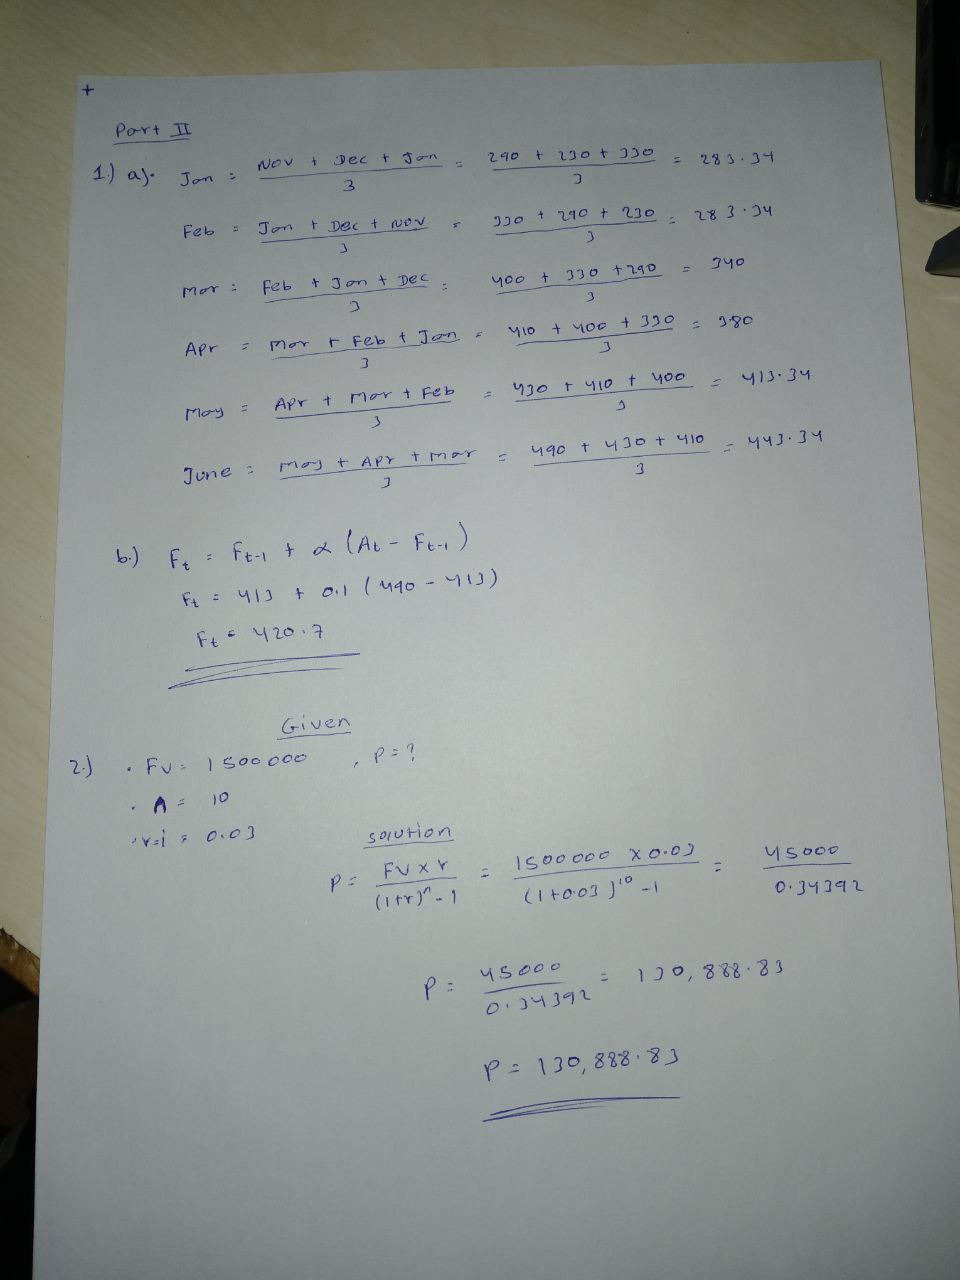 +
Part II
1.) a). Jan = Nov + Dec + Jan / 3 = 290 + 230 + 330 / 3 = 283.34
Feb = Jan + Dec + Nov / 3 = 330 + 290 + 230 / 3 = 283.34
Mar = Feb + Jan + Dec / 3 = 400 + 330 + 290 / 3 = 340
Apr = Mar + Feb + Jan / 3 = 410 + 400 + 330 / 3 = 380
May = Apr + Mar + Feb / 3 = 430 + 410 + 400 / 3 = 413.34
June = May + Apr + Mar / 3 = 490 + 430 + 410 / 3 = 443.34
b.) Ft = Ft-1 + α (At - Ft-1)
Ft = 413 + 0.1 (490 - 413)
Ft = 420.7
Given
2.) • FV = 1500000 , P = ?
• n = 10
• r=i = 0.03
Solution
P = FV x r / (1+r)^n - 1 = 1500000 x 0.03 / (1+0.03)^10 - 1 = 45000 / 0.34392
P = 45000 / 0.34392 = 130,888.83
P = 130,888.83